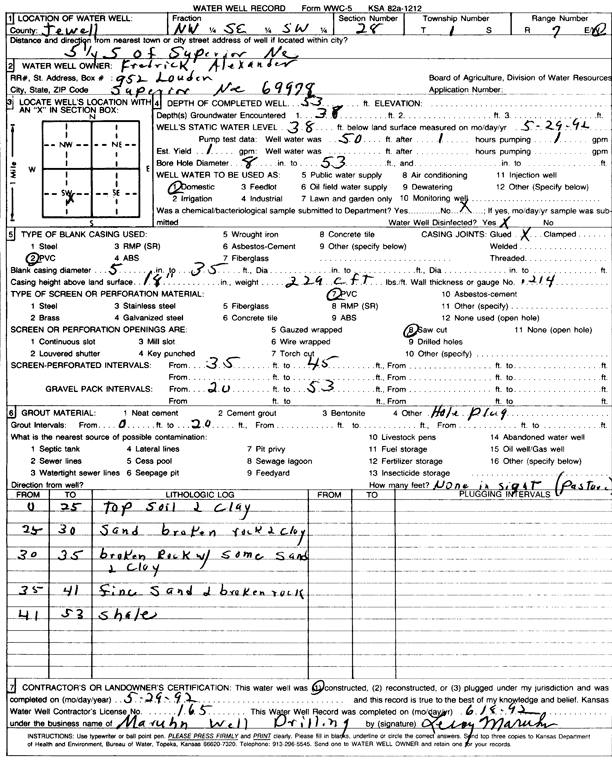 WATER WELL RECORD Form WWC-5 KSA 82a-1212
1 LOCATION OF WATER WELL: Fraction Section Number Township Number Range Number
County: Jewell NW ¼ SE ¼ SW ¼ 28 T 1 S R 7 E/W
Distance and direction from nearest town or city street address of well if located within city?
5 1/4 S of Superior Ne
2 WATER WELL OWNER: Fredrick Alexander
RR#, St. Address, Box # : 952 Louden Board of Agriculture, Division of Water Resources
City, State, ZIP Code : Superior Ne 69978 Application Number:
3 LOCATE WELL'S LOCATION WITH AN "X" IN SECTION BOX:
N
NW NE
W E
SW SE
X
S
1 Mile
4 DEPTH OF COMPLETED WELL 53 ft. ELEVATION:
Depth(s) Groundwater Encountered 1. 38 ft. 2. ft. 3. ft.
WELL'S STATIC WATER LEVEL 38 ft. below land surface measured on mo/day/yr 5-29-92
Pump test data: Well water was 50 ft. after 1 hours pumping 1 gpm
Est. Yield 1 gpm: Well water was ft. after hours pumping gpm
Bore Hole Diameter 8 in. to 53 ft., and in. to ft.
WELL WATER TO BE USED AS: 5 Public water supply 8 Air conditioning 11 Injection well
1 Domestic 3 Feedlot 6 Oil field water supply 9 Dewatering 12 Other (Specify below)
2 Irrigation 4 Industrial 7 Lawn and garden only 10 Monitoring well
Was a chemical/bacteriological sample submitted to Department? Yes No X ; If yes, mo/day/yr sample was submitted Water Well Disinfected? Yes X No
5 TYPE OF BLANK CASING USED: 5 Wrought iron 8 Concrete tile CASING JOINTS: Glued X Clamped
1 Steel 3 RMP (SR) 6 Asbestos-Cement 9 Other (specify below) Welded
2 PVC 4 ABS 7 Fiberglass Threaded
Blank casing diameter 5 in. to 35 ft., Dia in. to ft., Dia in. to ft.
Casing height above land surface 18" in., weight 229 cft lbs./ft. Wall thickness or gauge No. .214
TYPE OF SCREEN OR PERFORATION MATERIAL: 7 PVC 10 Asbestos-cement
1 Steel 3 Stainless steel 5 Fiberglass 8 RMP (SR) 11 Other (specify)
2 Brass 4 Galvanized steel 6 Concrete tile 9 ABS 12 None used (open hole)
SCREEN OR PERFORATION OPENINGS ARE: 5 Gauzed wrapped 8 Saw cut 11 None (open hole)
1 Continuous slot 3 Mill slot 6 Wire wrapped 9 Drilled holes
2 Louvered shutter 4 Key punched 7 Torch cut 10 Other (specify)
SCREEN-PERFORATED INTERVALS: From 35 ft. to 45 ft., From ft. to ft.
From ft. to ft., From ft. to ft.
GRAVEL PACK INTERVALS: From 20 ft. to 53 ft., From ft. to ft.
From ft. to ft., From ft. to ft.
6 GROUT MATERIAL: 1 Neat cement 2 Cement grout 3 Bentonite 4 Other Hole plug
Grout Intervals: From 0 ft. to 20 ft., From ft. to ft., From ft. to ft.
What is the nearest source of possible contamination: 10 Livestock pens 14 Abandoned water well
1 Septic tank 4 Lateral lines 7 Pit privy 11 Fuel storage 15 Oil well/Gas well
2 Sewer lines 5 Cess pool 8 Sewage lagoon 12 Fertilizer storage 16 Other (specify below)
3 Watertight sewer lines 6 Seepage pit 9 Feedyard 13 Insecticide storage
Direction from well? How many feet? None in sight (Pasture)
FROM TO LITHOLOGIC LOG FROM TO PLUGGING INTERVALS
0 25 Top soil & clay
25 30 Sand broken rock & clay
30 35 broken Rock w/ some sand & clay
35 41 fine sand & broken rock
41 53 shale
7 CONTRACTOR'S OR LANDOWNER'S CERTIFICATION: This water well was (1) constructed, (2) reconstructed, or (3) plugged under my jurisdiction and was
completed on (mo/day/year) 5-29-92 and this record is true to the best of my knowledge and belief. Kansas
Water Well Contractor's License No. 165 This Water Well Record was completed on (mo/day/yr) 6-18-92
under the business name of Maruhn Well Drilling by (signature) Leroy Maruhn
INSTRUCTIONS: Use typewriter or ball point pen. PLEASE PRESS FIRMLY and PRINT clearly. Please fill in blanks, underline or circle the correct answers. Send top three copies to Kansas Department
of Health and Environment, Bureau of Water, Topeka, Kansas 66620-7320. Telephone: 913-296-5545. Send one to WATER WELL OWNER and retain one for your records.